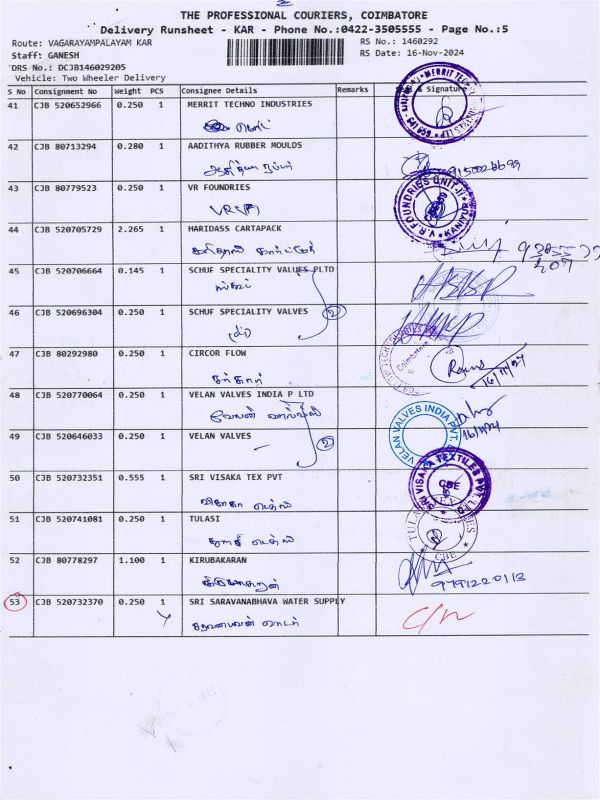 THE PROFESSIONAL COURIERS, COIMBATORE
Delivery Runsheet - KAR - Phone No.:0422-3505555 - Page No.:5
Route: VAGARAYAMPALAYAM KAR RS No.: 1460292
Staff: GANESH RS Date: 16-Nov-2024
DRS No.: DCJB146029205
Vehicle: Two Wheeler Delivery
S No Consignment No Weight PCS Consignee Details Remarks & Signature
41 CJB 520652966 0.250 1 MERRIT TECHNO INDUSTRIES
மெரிட்
42 CJB 80713294 0.280 1 AADITHYA RUBBER MOULDS
ஆதித்யா ரப்பர்
43 CJB 80779523 0.250 1 VR FOUNDRIES
VR
V.R. FOUNDRIES UNIT-II
44 CJB 520705729 2.265 1 HARIDASS CARTAPACK
45 CJB 520706664 0.145 1 SCHUF SPECIALITY VALUES PLTD
46 CJB 520696304 0.250 1 SCHUF SPECIALITY VALVES
2
47 CJB 80292980 0.250 1 CIRCOR FLOW
சர்கார்
Coimbatore
16/11/24
48 CJB 520770064 0.250 1 VELAN VALVES INDIA P LTD
வேலன் வால்வ்ஸ்
VELAN VALVES INDIA PVT.
16/11/24
49 CJB 520646033 0.250 1 VELAN VALVES
2
50 CJB 520732351 0.555 1 SRI VISAKA TEX PVT
விசாகா டெக்ஸ்
SRI VISAKA TEXTILES PVT LTD
CBE
51 CJB 520741081 0.250 1 TULASI
துளசி டெக்ஸ்
CBE
52 CJB 80778297 1.100 1 KIRUBAKARAN
கிருபாகரன்
9791220113
53 CJB 520732370 0.250 1 SRI SARAVANABHAVA WATER SUPPLY
சரவணபவன் வாட்டர்
C/N